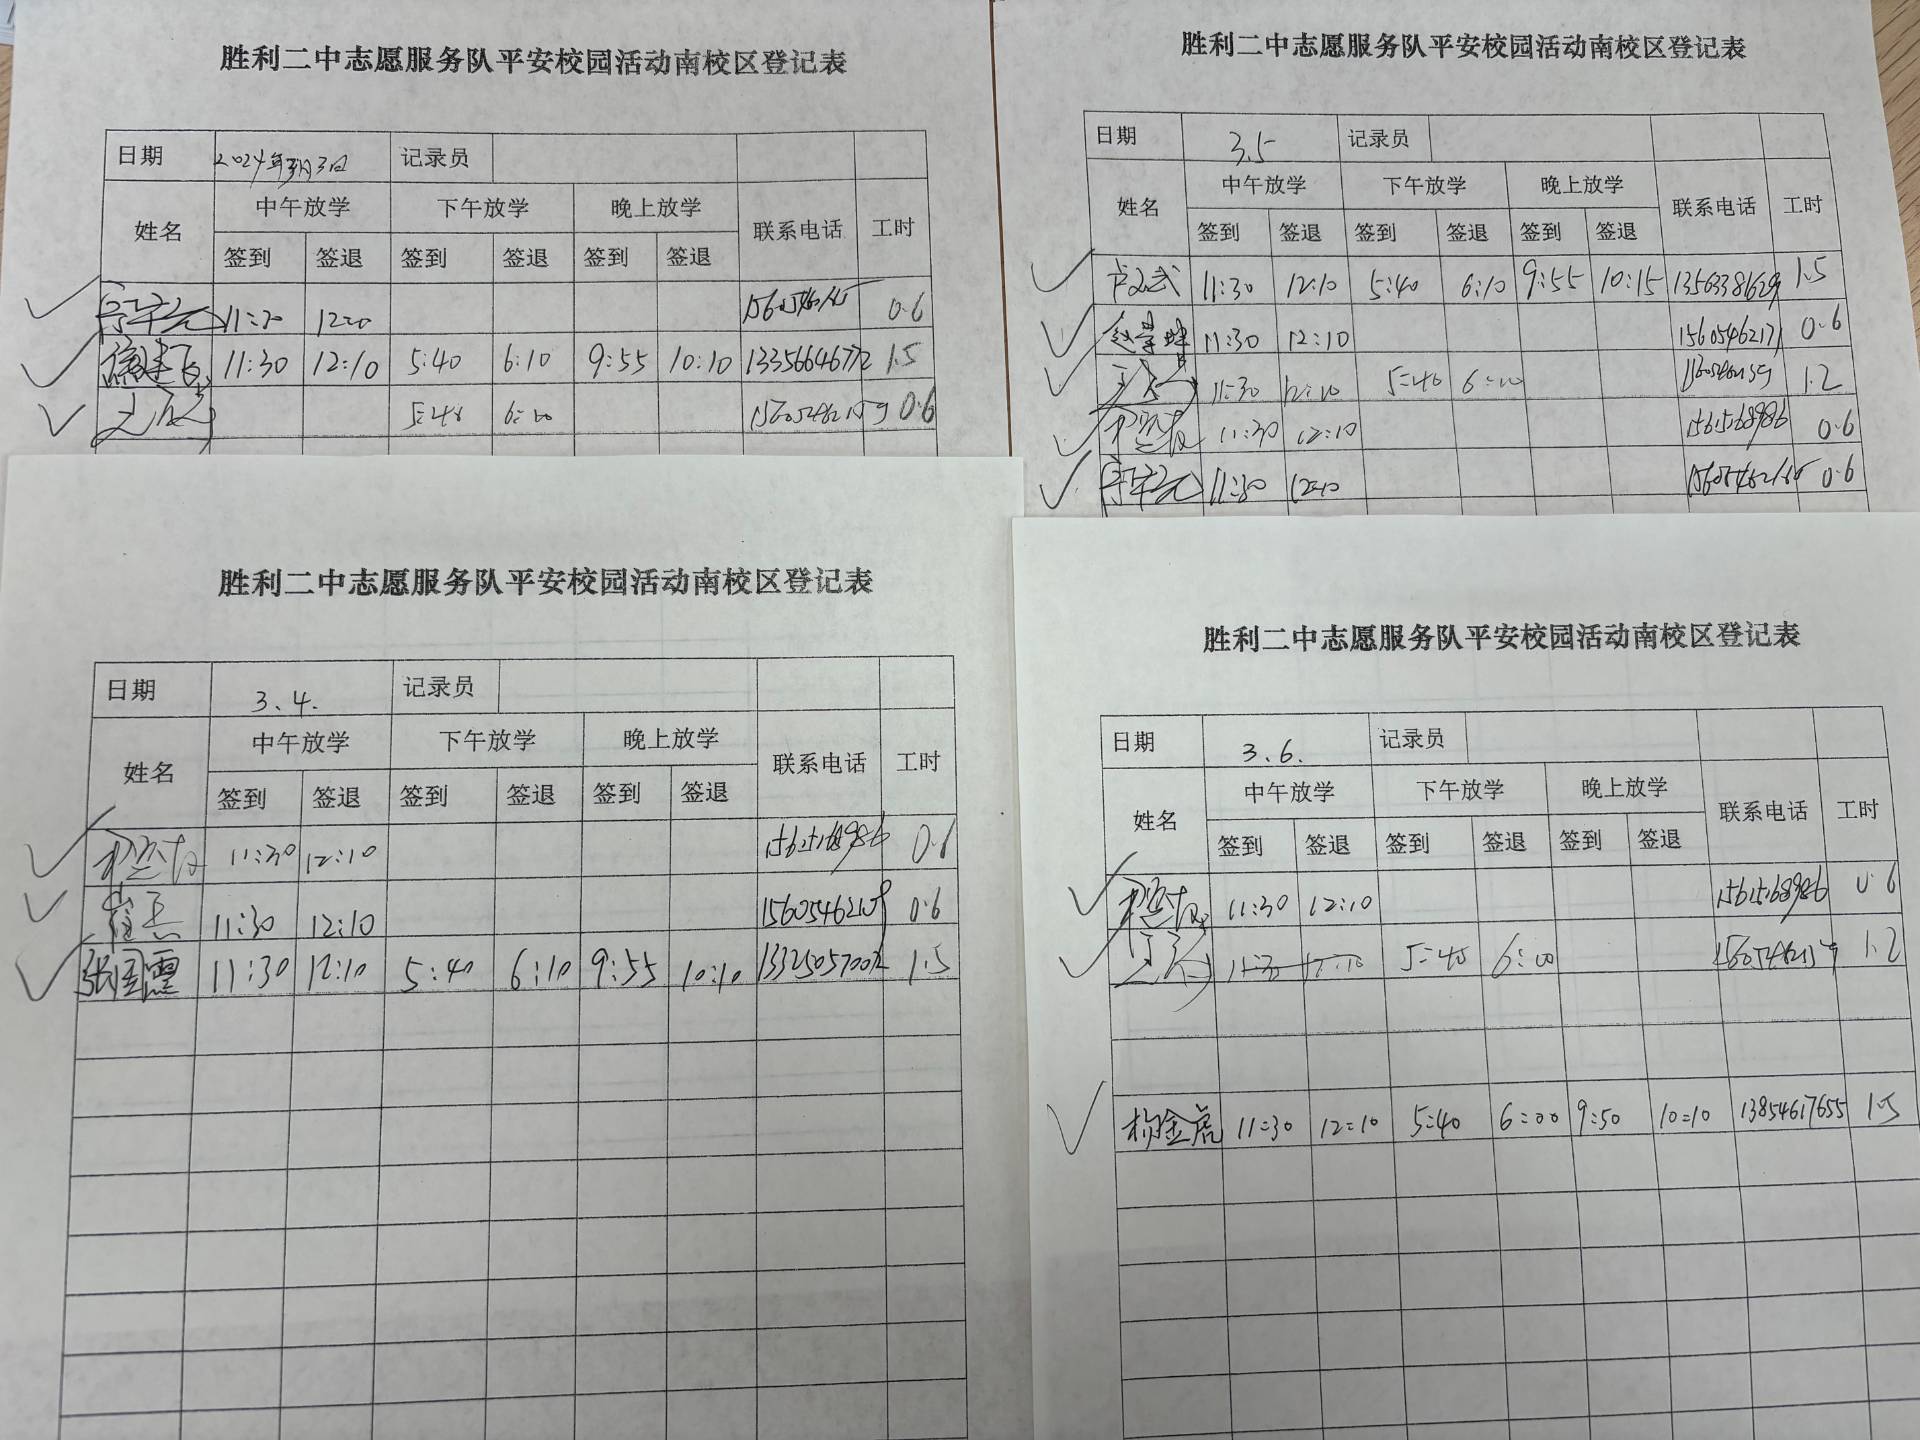 胜利二中志愿服务队平安校园活动南校区登记表
日期 2024年3月3日 记录员
姓名 中午放学 下午放学 晚上放学 联系电话 工时
签到 签退 签到 签退 签到 签退
0.6
11:30 12:10 5:40 6:10 9:55 10:10 13356646772 1.5
0.6
胜利二中志愿服务队平安校园活动南校区登记表
日期 3.5 记录员
姓名 中午放学 下午放学 晚上放学 联系电话 工时
签到 签退 签到 签退 签到 签退
11:30 12:10 5:40 6:10 9:55 10:15 13563381629 1.5
11:30 12:10 15605462171 0.6
11:30 12:10 5:40 1.2
11:30 12:10 15615168986 0.6
11:30 12:10 0.6
胜利二中志愿服务队平安校园活动南校区登记表
日期 3.4. 记录员
姓名 中午放学 下午放学 晚上放学 联系电话 工时
签到 签退 签到 签退 签到 签退
11:30 12:10 15615168986 0.6
11:30 12:10 0.6
11:30 12:10 5:40 6:10 9:55 10:10 1.5
胜利二中志愿服务队平安校园活动南校区登记表
日期 3.6. 记录员
姓名 中午放学 下午放学 晚上放学 联系电话 工时
签到 签退 签到 签退 签到 签退
11:30 12:10 15615168986 0.6
11:30 12:10 5:40 6:00 1.2
杨金虎 11:30 12:10 5:40 6:00 9:50 10:10 13854617655 1.5